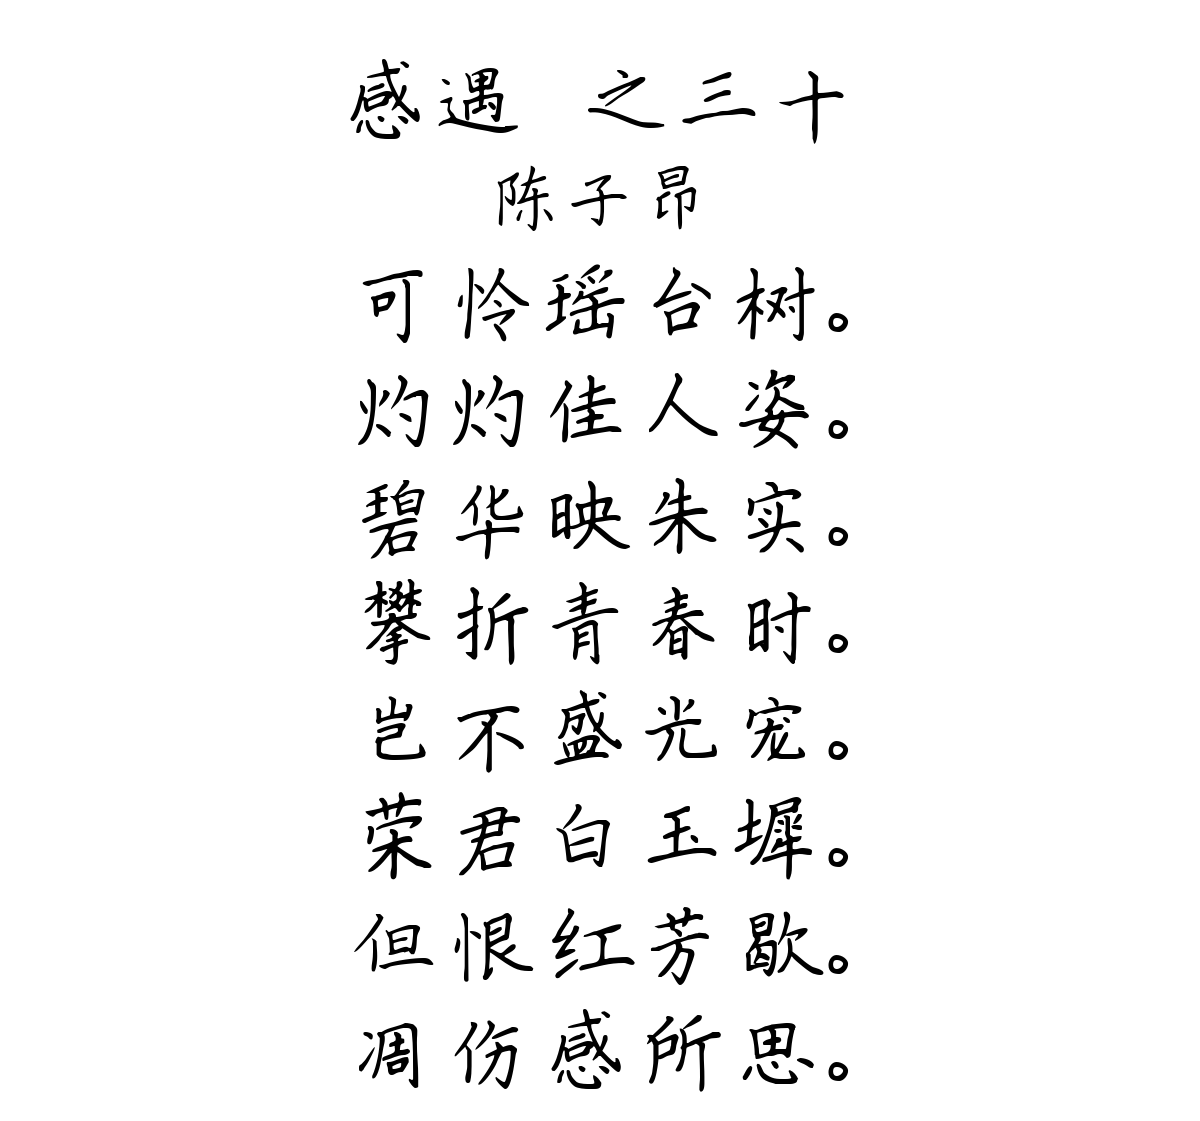 感遇 之三十
陈子昂
可怜瑶台树。
灼灼佳人姿。
碧华映朱实。
攀折青春时。
岂不盛光宠。
荣君白玉墀。
但恨红芳歇。
凋伤感所思。